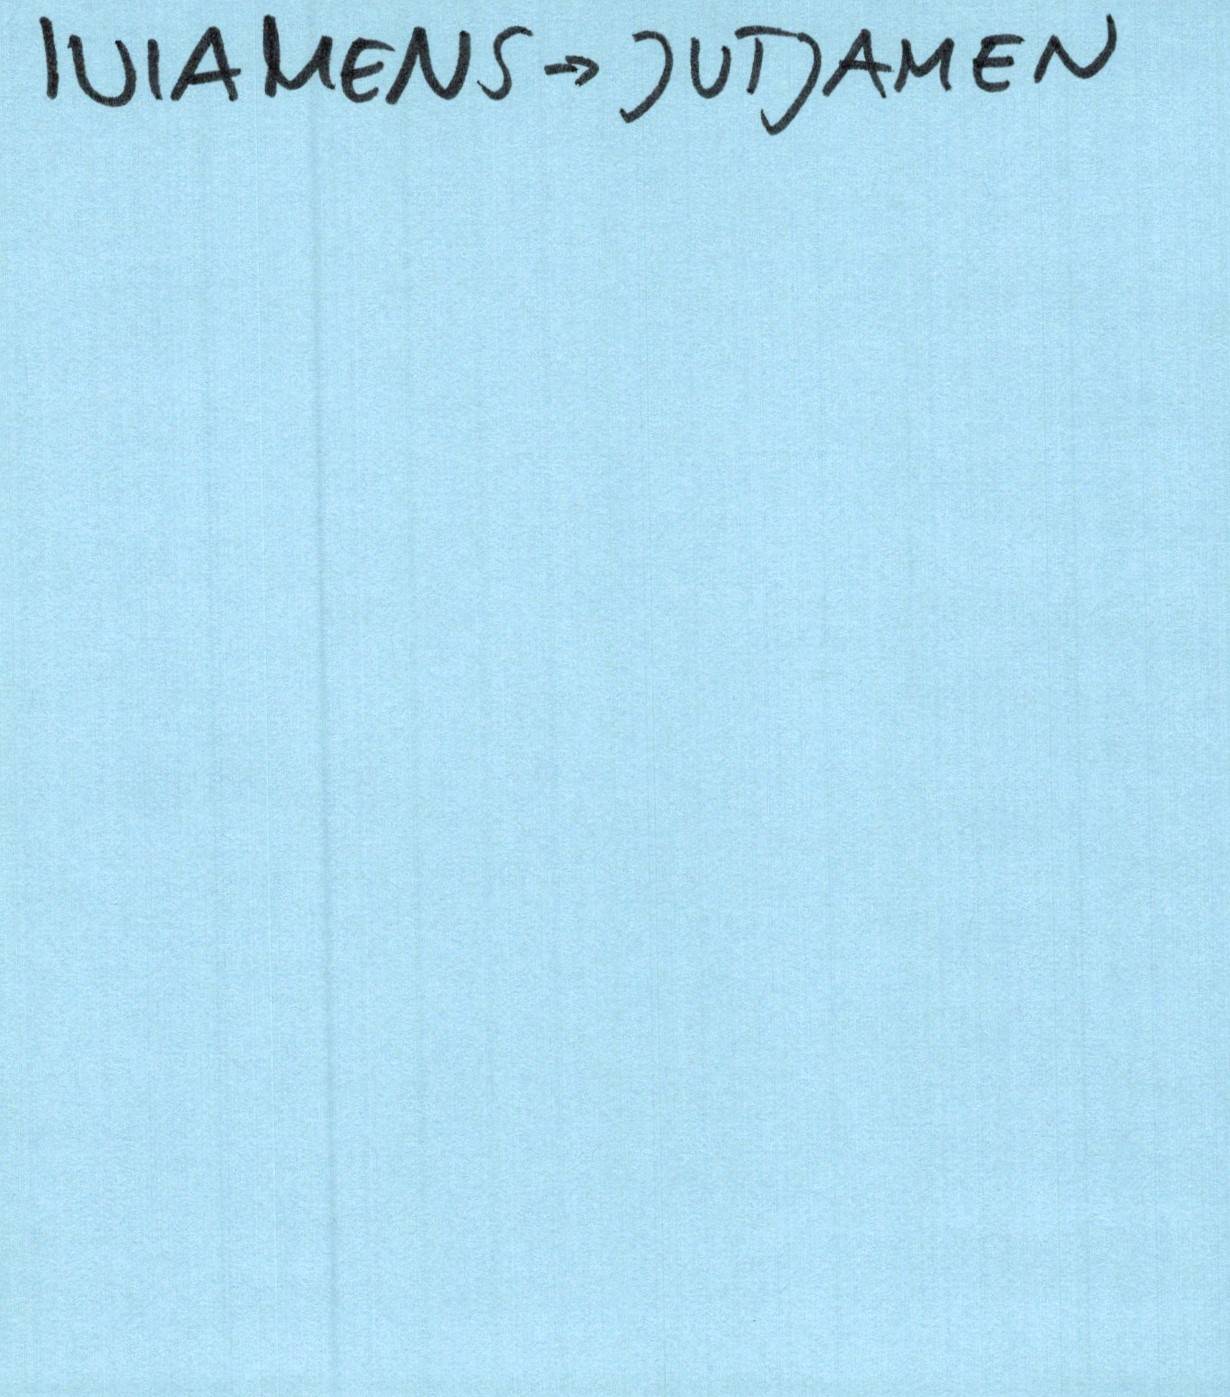 IUIAMENS → JUTJAMEN